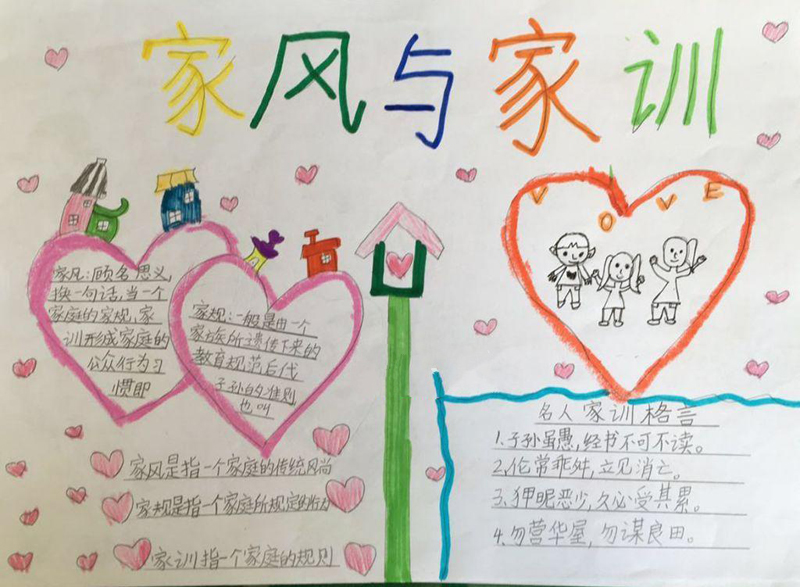 家风与家训
家风:顾名思义,
换一句话,当一个
家庭的家规,家
训形成家庭的
公众行为习
惯即
家规:一般是由一个
家族所遗传下来的
教育规范后代
子孙的准则
也叫
家风是指一个家庭的传统风尚
家规是指一个家庭所规定的行为
家训指一个家庭的规则
VOVE
名人家训格言
1.子孙虽愚,经书不可不读。
2.伦常乖舛,立见消亡。
3.狎昵恶少,久必受其累。
4.勿营华屋,勿谋良田。